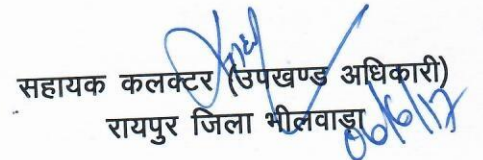 सहायक कलक्टर (उपखण्ड अधिकारी)
रायपुर जिला भीलवाड़ा
06/6/17